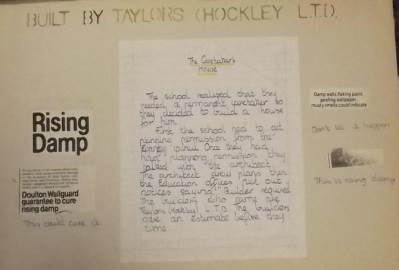 BUILT BY TAYLORS (HOCKLEY L.T.D.
The Caretaker's
House
The school realised that they
needed a permanant caretaker so
they decided to build a house
for him.
First the school had to get
planning permission from the
joined Once they had
had planning permission they
talked with the architect.
The architect drew plans then
the Education offices put out
notices saying "Builder required
The builders who came are
Taylors (Hockley) L.T.D. The builders
gave an estimate before they
came
Rising
Damp
Doulton Wallguard
guarantee to cure
rising damp
This could cure it.
Damp walls, flaking paint,
peeling wallpaper,
musty smells could indicate
Don't let it happen
This is rising damp